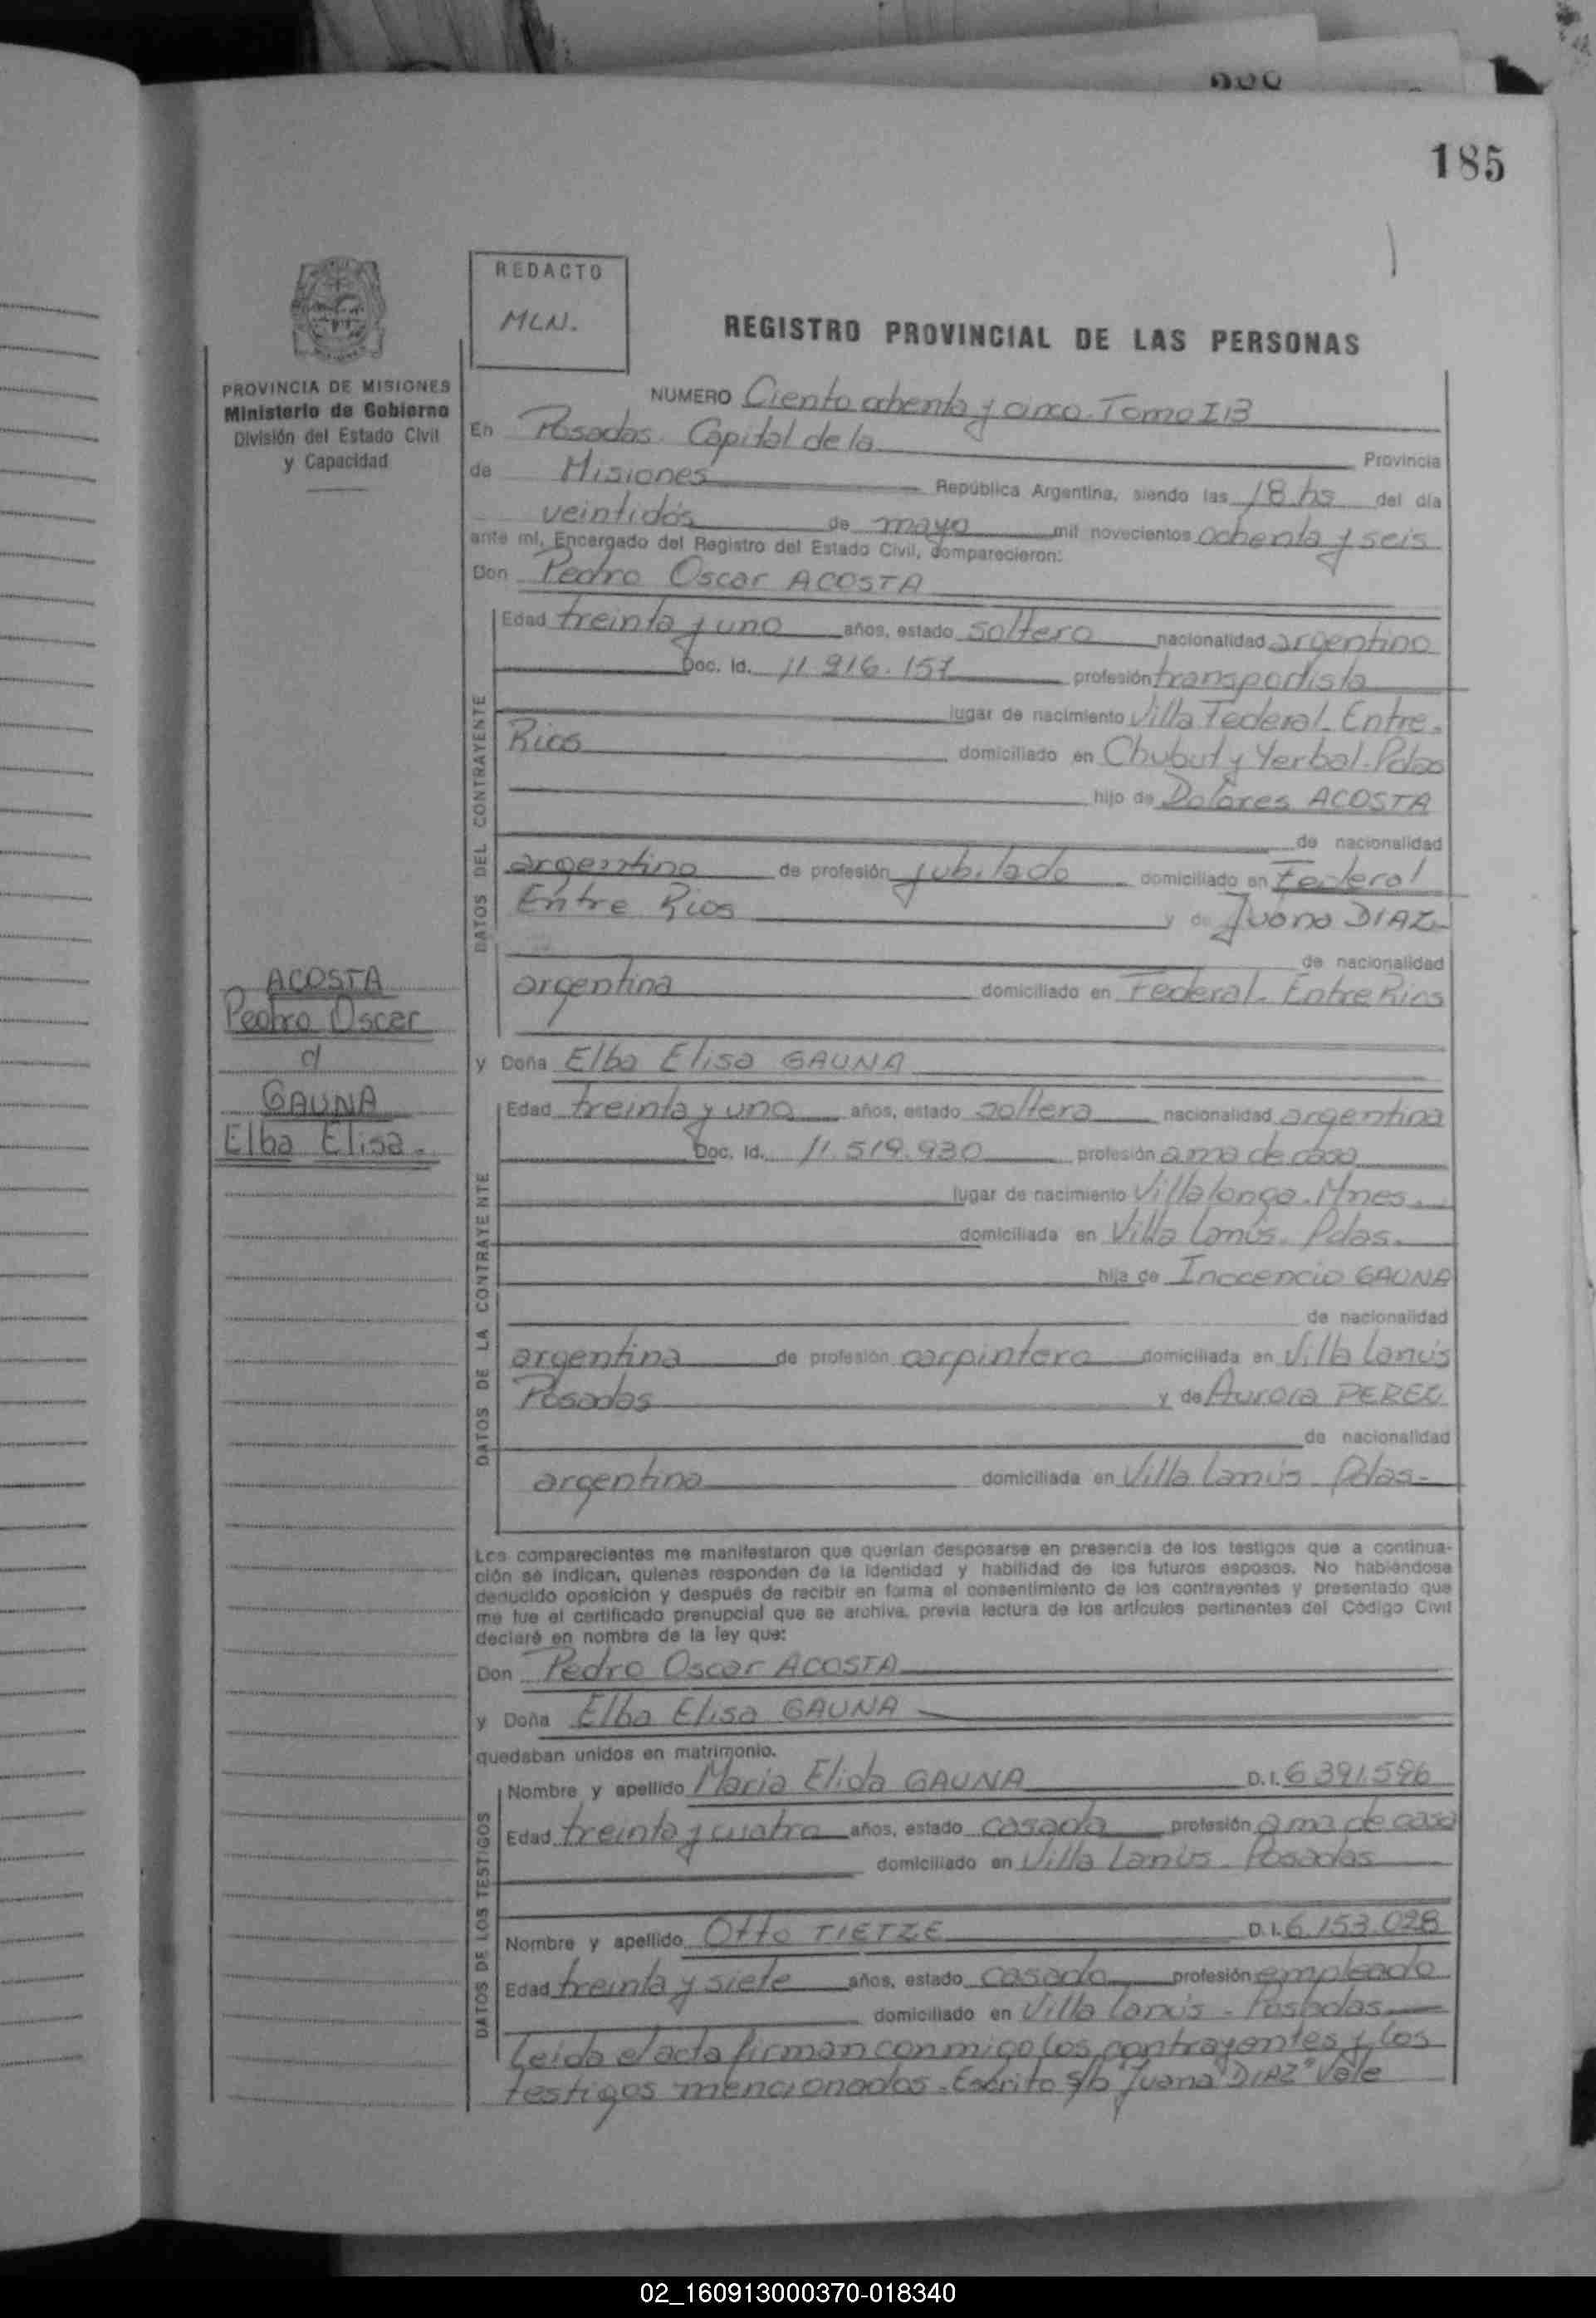 185
REDACTO
MLN.
REGISTRO PROVINCIAL DE LAS PERSONAS
PROVINCIA DE MISIONES
Ministerio de Gobierno
División del Estado Civil
y Capacidad
NUMERO Ciento ochenta y cinco. Tomo I B
En Posadas. Capital de la Provincia
de Misiones República Argentina, siendo las 18 hs del día
veintidós de mayo mil novecientos ochenta y seis
ante mí, Encargado del Registro del Estado Civil, comparecieron:
Don Pedro Oscar ACOSTA
DATOS DEL CONTRAYENTE
Edad treinta y uno años, estado soltero nacionalidad argentino
Doc. Id. 11.916.157 profesión transportista
lugar de nacimiento Villa Federal. Entre
Rios domiciliado en Chubut y Yerbal-Pdas
hijo de Dolores ACOSTA
de nacionalidad
argentino de profesión jubilado domiciliado en Federal
Entre Rios y de Juana DIAZ
de nacionalidad
argentina domiciliado en Federal. Entre Rios
ACOSTA
Pedro Oscar
c/
GAUNA
Elba Elisa.
y Doña Elba Elisa GAUNA
DATOS DE LA CONTRAYENTE
Edad treinta y uno años, estado soltera nacionalidad argentina
Doc. Id. 11.519.930 profesión ama de casa
lugar de nacimiento Villalonga. Mnes.
domiciliada en Villa Lanús. Pdas.
hija de Inocencio GAUNA
de nacionalidad
argentina de profesión carpintero domiciliada en Villa Lanús
Posadas y de Aurora PEREZ
de nacionalidad
argentina domiciliada en Villa Lanús Pdas-
Los comparecientes me manifestaron que querían desposarse en presencia de los testigos que a continua-
ción se indican, quienes responden de la identidad y habilidad de los futuros esposos. No habiéndose
deducido oposición y después de recibir en forma el consentimiento de los contrayentes y presentado que
me fue el certificado prenupcial que se archiva, previa lectura de los artículos pertinentes del Código Civil
declaré en nombre de la ley que:
Don Pedro Oscar ACOSTA
y Doña Elba Elisa GAUNA
quedaban unidos en matrimonio.
DATOS DE LOS TESTIGOS
Nombre y apellido Maria Elida GAUNA D.I. 6.391.596
Edad treinta y cuatro años, estado casada profesión ama de casa
domiciliado en Villa Lanús. Posadas
Nombre y apellido Otto TIETZE D.I. 6.153.028
Edad treinta y siete años, estado casado profesión empleado
domiciliado en Villa Lanús - Posadas
Leida el acta firman conmigo los contrayentes y los
testigos mencionados. Escrito s/b "Juana DIAZ" Vale
02_160913000370-018340